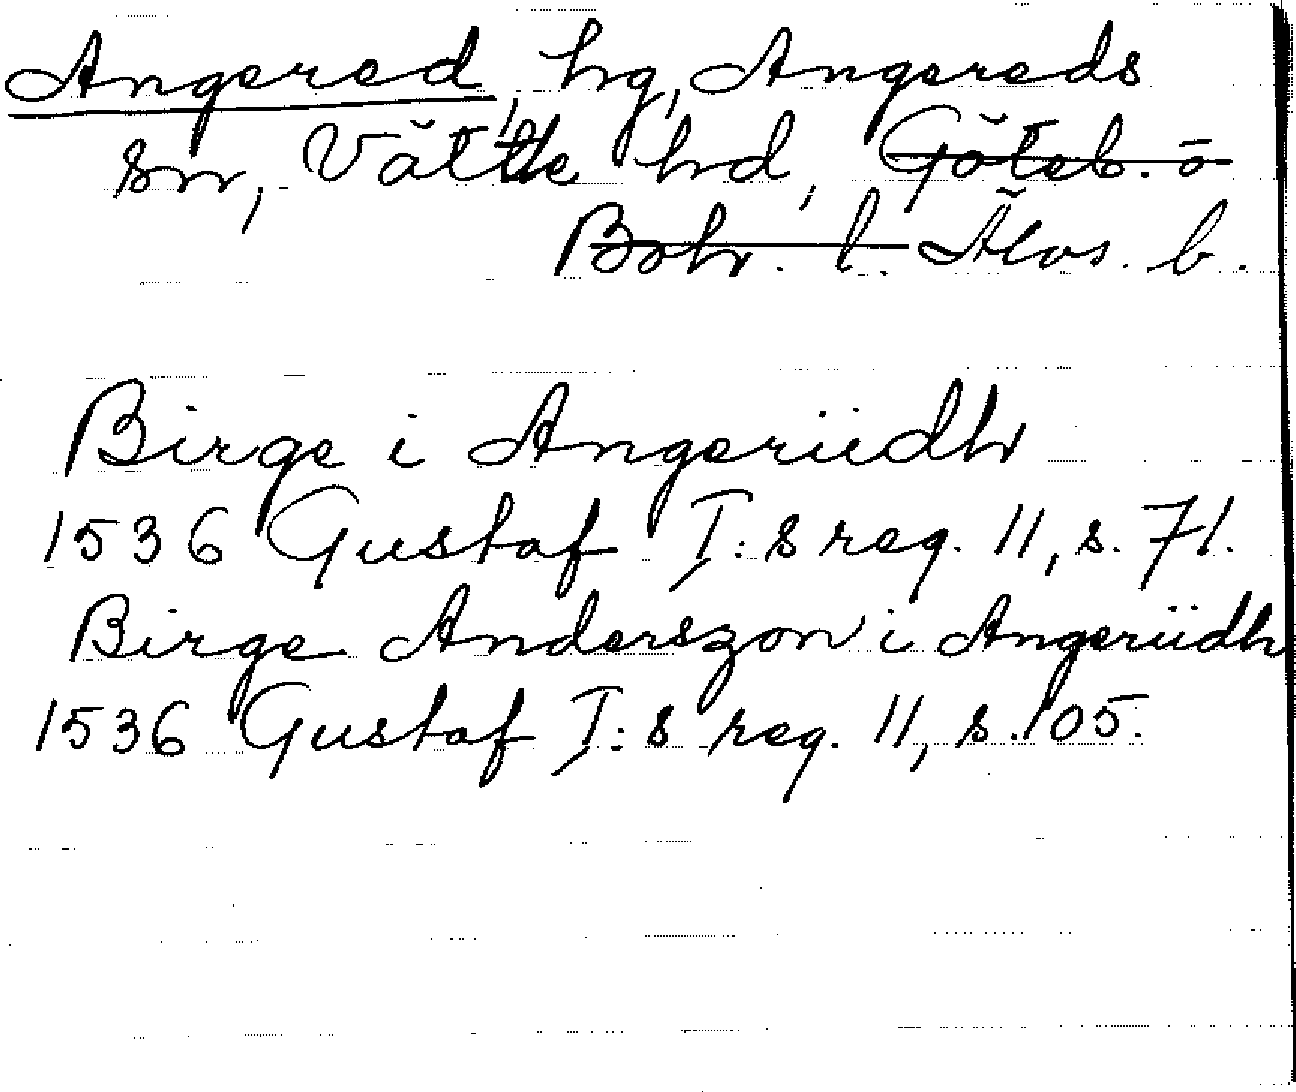 Angered, hg, Angereds
sn, Vättle hd, Göteb. o
Boh. l. Älvs. l.
Birge i Angerüdh
1536 Gustaf I:s reg. 11, s. 71.
Birge Anderszon i Angerüdh
1536 Gustaf I:s reg. 11, s. 105.